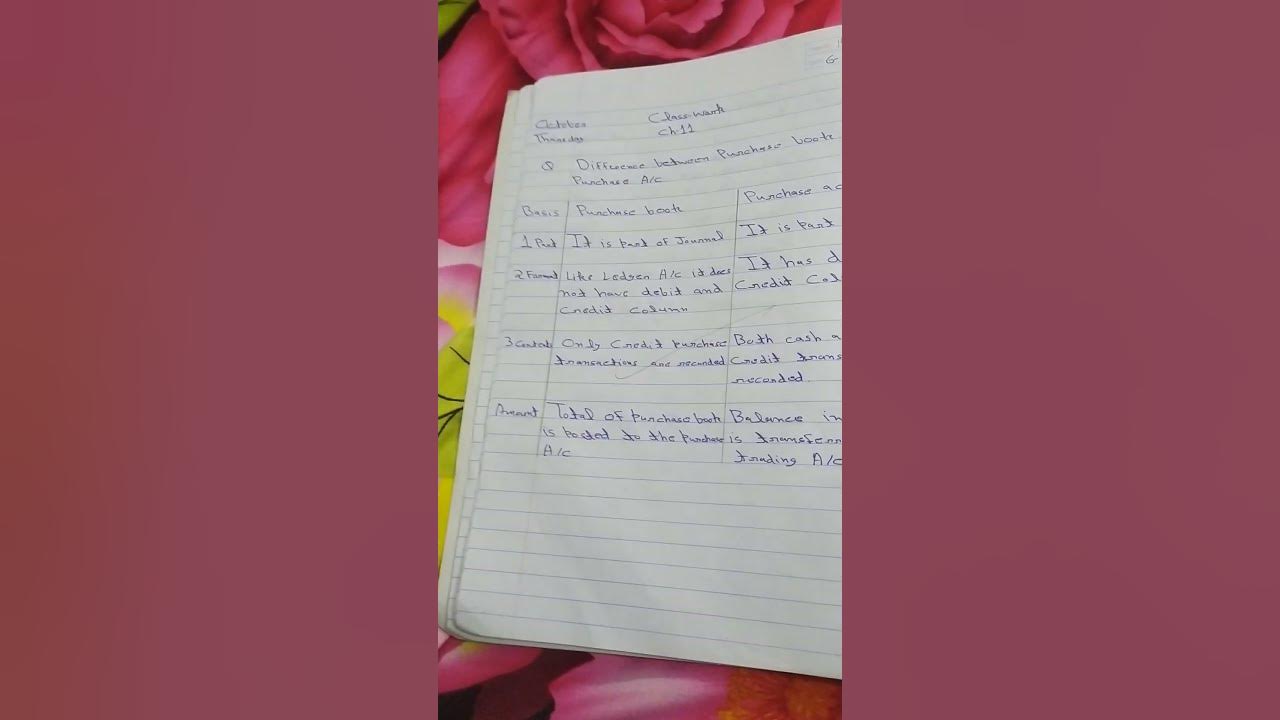 October Class-Work
Thursday Ch-11
Q Difference between Purchase book
Purchase A/c
Basis Purchase book Purchase ac
1 Part It is part of Journal It is part
2 Format Like Ledger A/c it does It has d
not have debit and Credit Col
Credit column
3 Contents Only Credit purchase Both cash a
transactions are recorded Credit trans
recorded.
Amount Total of purchase book Balance in
is posted to the purchase is transferr
A/c trading A/c